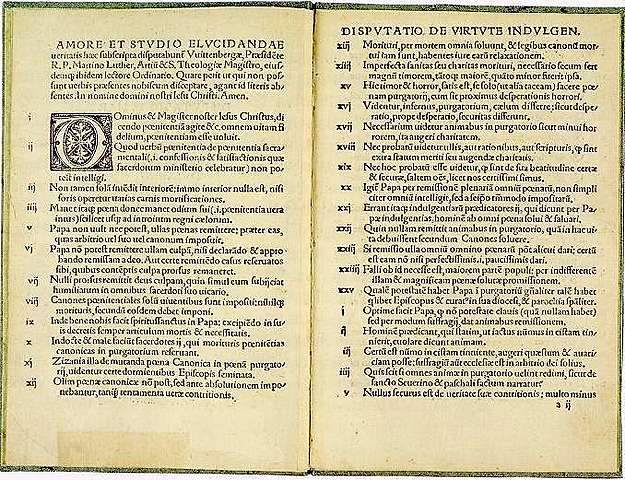 AMORE ET STVDIO ELVCIDANDAE
ueritatis hæc subscripta disputabunt Vuittenbergæ, Præsidete
R. P. Martino Luther, Artiū & S. Theologiæ Magistro, eius-
demq; ibidem lectore Ordinario. Quare petit ut qui non pos-
sunt verbis præsentes nobiscum disceptare, agant id literis ab-
sentes. In nomine domini nostri Iesu Christi. Amen.
i DOminus & Magister noster Iesus Christus, di-
cendo pœnitentiā agite &c. omnem uitam fi-
delium, pœnitentiam esse uoluit.
ij Quod uerbū pœnitentia de pœnitentia sacra-
mentali (.i. confessionis & satisfactionis quæ
sacerdotum ministerio celebratur) non po-
test intelligi.
iij Non tamen solā intēdit interiorē: immo interior nulla est, nisi
foris operetur uarias carnis mortificationes.
iiij Manet itaq; pœna donec manet odium sui (.i. pœnitentia uera
intus) scilicet usq; ad introitum regni cælorum.
v Papa non uult nec potest, ullas pœnas remittere: præter eas,
quas arbitrio uel suo uel canonum imposuit.
vj Papa nō potest remittere ullam culpā, nisi declarādo & appro
bando remissam a deo. Aut certe remittēdo casus reseruatos
sibi, quibus contēptis culpa prorsus remaneret.
vij Nulli prorsus remittit deus culpam, quin simul eum subijciat
humiliatum in omnibus sacerdoti suo uicario.
viij Canones pœnitentiales solū uiuentibus sunt impositi: nihilq;
morituris, secundū eosdem debet imponi.
ix Inde bene nobis facit spiritussanctus in Papa: excipiēdo in su-
is decretis semper articulum mortis & necessitatis.
x Indocte & male faciūt sacerdotes ij, qui morituris pœnitētias
canonicas in purgatorium reseruant.
xj Zizania illa de mutanda pœna Canonica in pœnā purgato-
rij, uidentur certe dormientibus Episcopis seminata.
xij Olim pœnæ canonicæ nō post, sed ante absolutionem impo-
nebantur, tanq̄ tentamenta ueræ contritionis.
DISPVTATIO DE VIRTVTE INDVLGEN.
xiij Morituri, per mortem omnia soluunt, & legibus canonū mor-
tui iam sunt, habentes iure earū relaxationem.
xiiij Imperfecta sanitas seu charitas morituri, necessario secum fert
magnū timorem, tātoq; maiorē, quāto minor fuerit ipsa.
xv Hic timor & horror, satis est, se solo (ut alia taceam) facere pœ-
nam purgatorij, cum sit proximus desperationis horrori.
xvj Videntur, infernus, purgatorium, cælum differre: sicut despe-
ratio, prope desperatio, securitas differunt.
xvij Necessarium uidetur animabus in purgatorio sicut minui hor
rorem, ita augeri charitatem.
xviij Nec probatū uidetur ullis, aut rationibus, aut scripturis, q̄ sint
extra statum meriti seu augendæ charitatis.
xix Nec hoc probatū esse uidetur, q̄ sint de sua beatitudine certæ
& securæ, saltem oēs, licet nos certissimi simus.
xx Igit̄ Papa per remissionē plenariā omniū pœnarū, non simpli
citer omniū intelligit, sed a seipso tātūmodo impositarū.
xxj Errant itaq; indulgentiarū prædicatores ij, qui dicunt per Pa-
pæ indulgentias, hominē ab omni pœna solui & saluari.
xxij Quin nullam remittit animabus in purgatorio, quā in hac ui-
ta debuissent secundum Canones soluere.
xxiij Si remissio ulla omniū omnino pœnarū pōt alicui dari; certū
est eam nō nisi perfectissimis .i. paucissimis dari.
xxiiij Falli ob id necesse est, maiorem partē populi: per indifferentē
illam & magnificam pœnæ solutæ promissionem.
xxv Qualē potestatē habet Papa ī purgatoriū gñaliter talē habet
qlibet Episcopus & curat̄ in sua diocesi, & parochia spāliter.
i Optime facit Papa, q̄ nō potestate clauis (quā nullam habet)
sed per modum suffragij, dat animabus remissionem.
ij Hominē prædicant, qui statim, ut iactus nūmus in cistam tin-
nierit, euolare dicunt animam.
iij Certū est nūmo in cistam tinniente, augeri quæstum & auari-
ciam posse: suffragiū aūt ecclesiæ est in arbitrio dei solius.
iiij Quis scit si omnes animæ in purgatorio uelint redimi, sicut de
sancto Seuerino & paschali factum narratur.
v Nullus securus est de ueritate suæ contritionis; multo minus
a ij